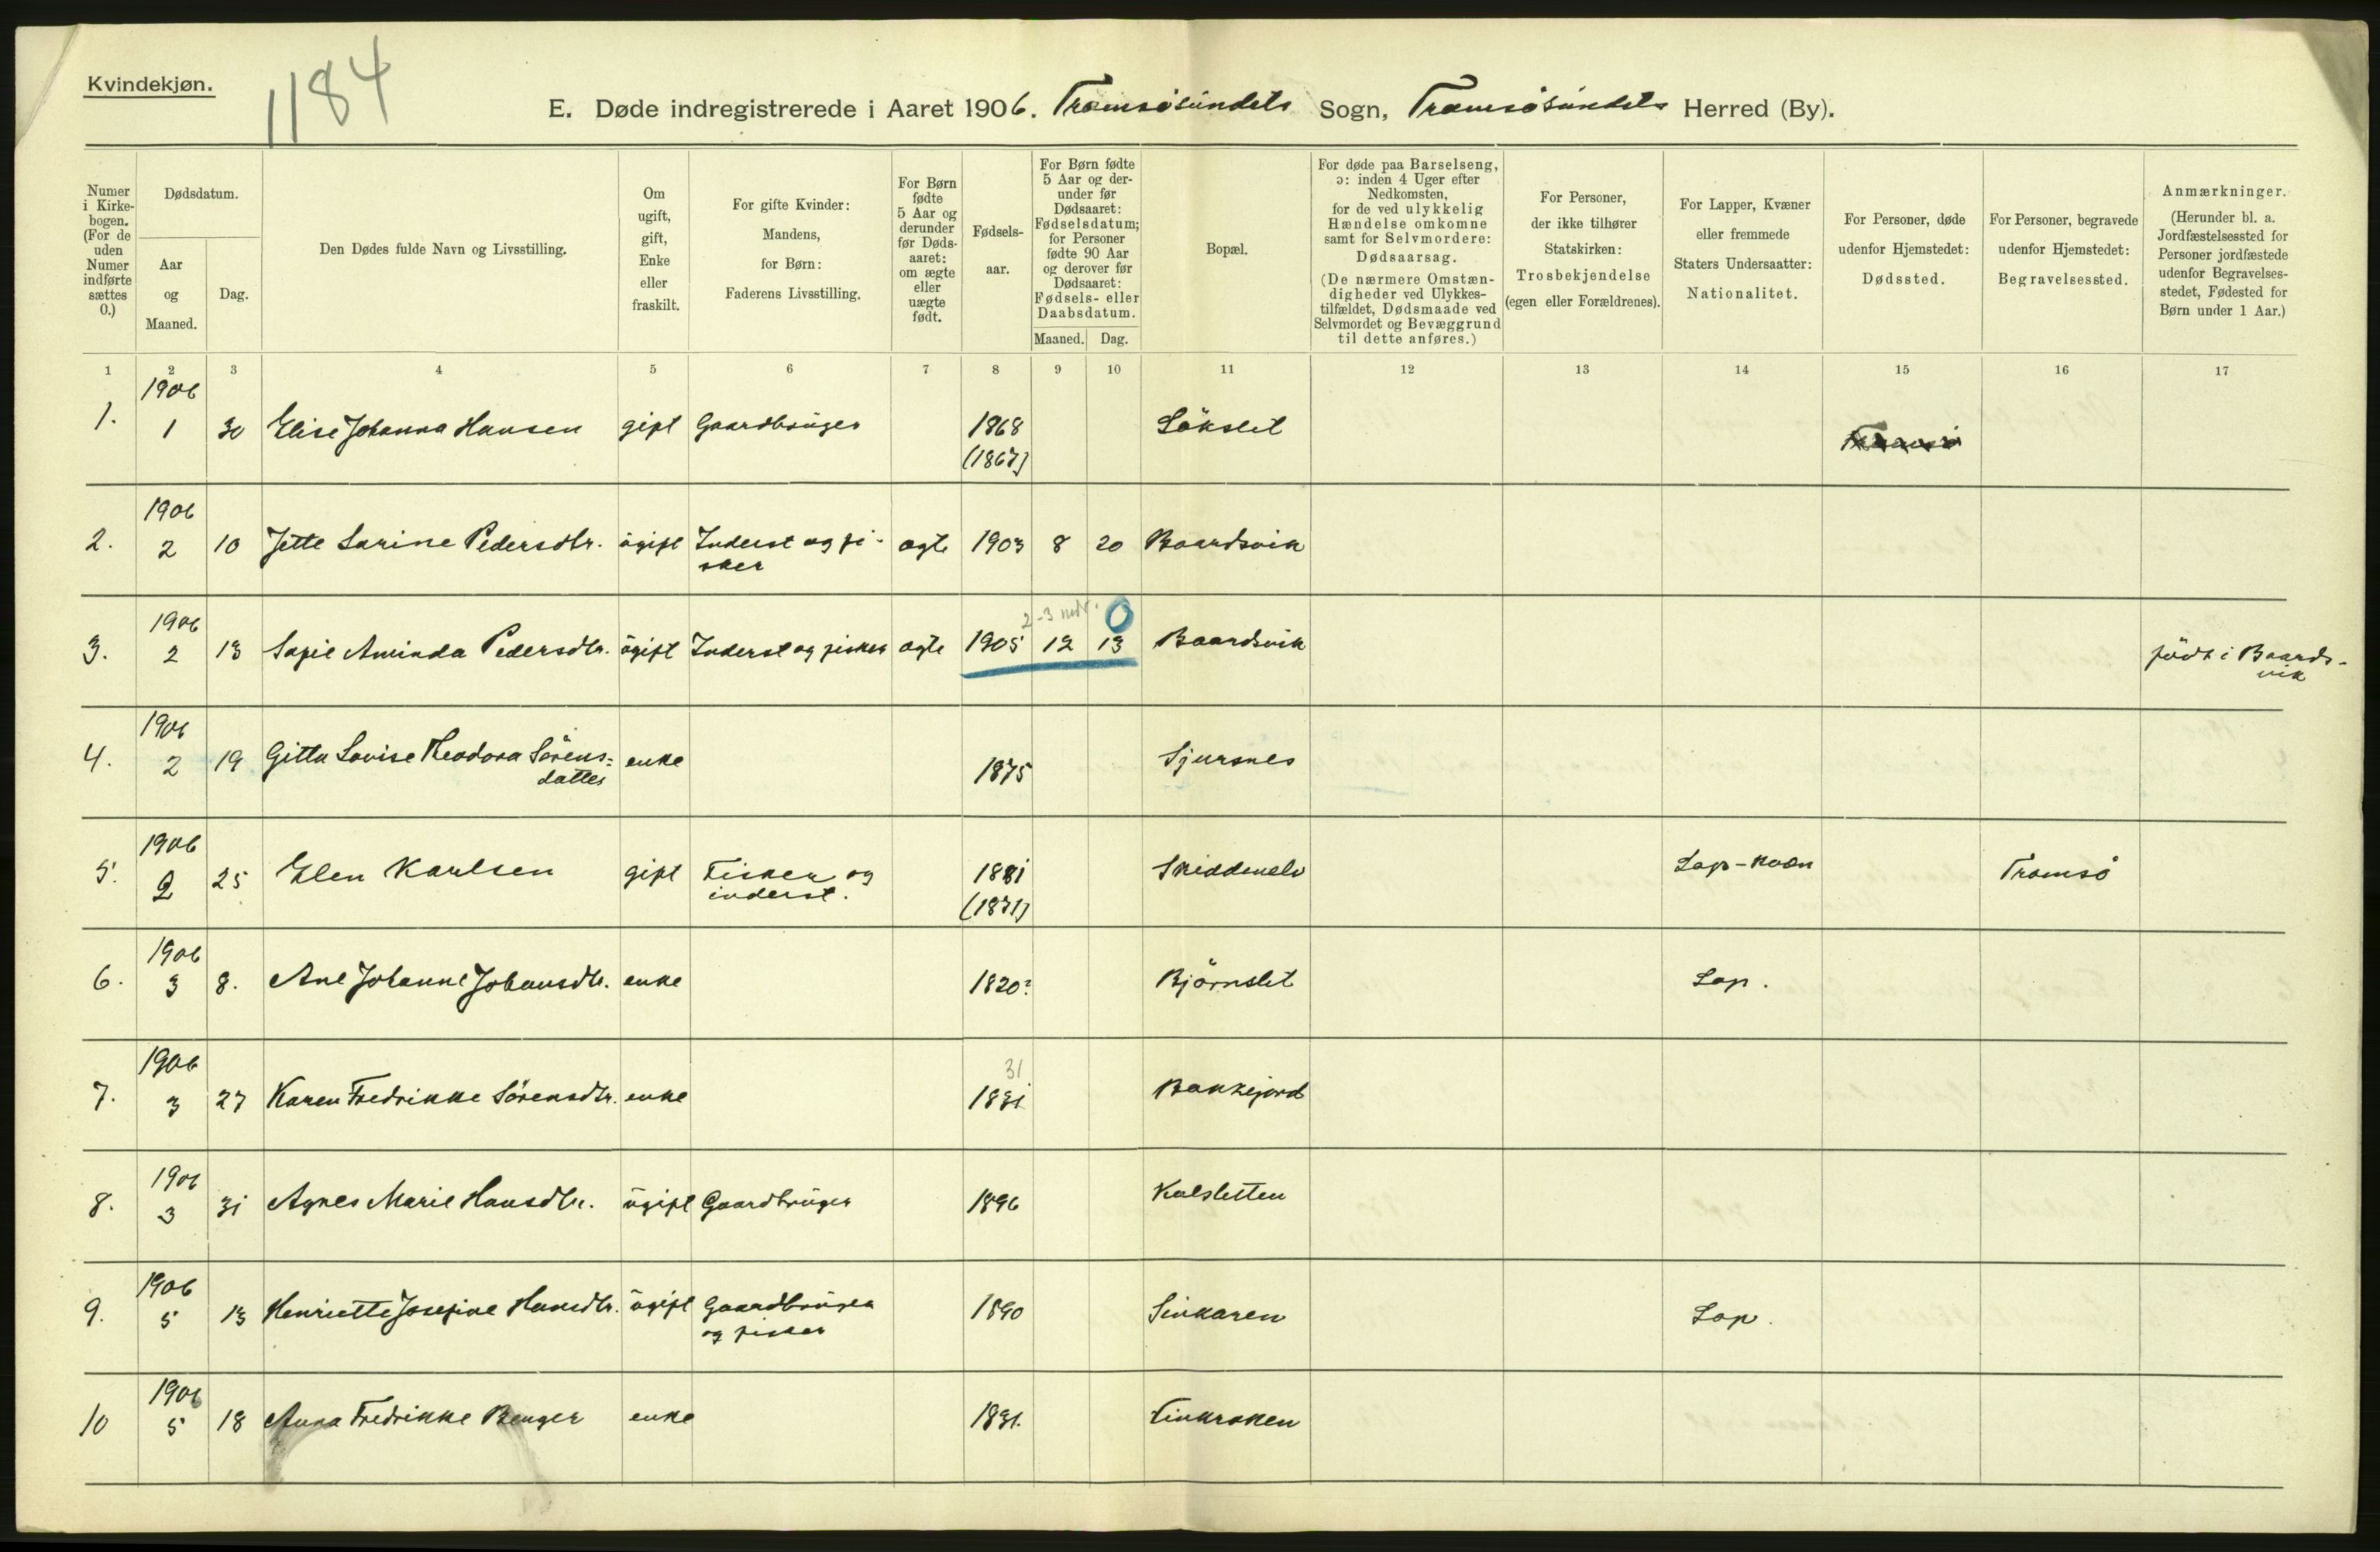 Kvindekjøn.
1184
E. Døde indregistrerede i Aaret 1906. Tromsøsundets Sogn, Tromsøsundets Herred (By).
Numer i Kirke-bogen. (For de uden Numer indførte sættes 0.)
Dødsdatum.
Aar og Maaned.
Dag.
Den Dødes fulde Navn og Livsstilling.
Om ugift, gift, Enke eller fraskilt.
For gifte Kvinder: Mandens, for Børn: Faderens Livsstilling.
For Børn fødte 5 Aar og derunder før Døds-aaret: om ægte eller uægte født.
Fødsels-aar.
For Børn fødte 5 Aar og der-under før Dødsaaret: Fødselsdatum; for Personer fødte 90 Aar og derover før Dødsaaret: Fødsels- eller Daabsdatum.
Maaned. Dag.
Bopæl.
For døde paa Barselseng, ɔ: inden 4 Uger efter Nedkomsten, for de ved ulykkelig Hændelse omkomne samt for Selvmordere: Dødsaarsag. (De nærmere Omstæn-digheder ved Ulykkes-tilfældet, Dødsmaade ved Selvmordet og Bevæggrund til dette anføres.)
For Personer, der ikke tilhører Statskirken: Trosbekjendelse (egen eller Forældrenes).
For Lapper, Kvæner eller fremmede Staters Undersaatter: Nationalitet.
For Personer, døde udenfor Hjemstedet: Dødssted.
For Personer, begravede udenfor Hjemstedet: Begravelsessted.
Anmærkninger. (Herunder bl. a. Jordfæstelsessted for Personer jordfæstede udenfor Begravelses-stedet, Fødested for Børn under 1 Aar.)
1 2 3 4 5 6 7 8 9 10 11 12 13 14 15 16 17
1906
1. 1 30 Elise Johanna Hansen gift Gaardbruger 1868 Lökslet Tromsö
(1867)
1906
2. 2 10 Jette Sarine Pedersdtr. ugift Inderst og fi- ægte 1903 8 20 Baardsvik
sker
1906 2-3 mdr. 0
3. 2 13 Sofie Aminda Pedersdtr. ugift Inderst og fisker ægte 1905 12 13 Baardsvik född i Baards-
vik
1906
4. 2 19 Gitta Lovise Theodora Sörens= enke 1875 Sjursnes
datter
1906
5. 2 25 Elen Karlsen gift Fisker og 1881 Skiddenelv Lap-kvæn Tromsö
inderst. (1871)
1906
6. 3 8. Ane Johanne Johansdtr. enke 1820? Björnslet Lap.
1906 31
7. 3 27 Karen Fredrikke Sörensdtr. enke 1831 Bakkejord
1906
8. 3 31 Agnes Marie Hansdtr. ugift Gaardbruger 1896 Kalsletten
1906
9. 5 13 Henriette Josefine Hansdtr. ugift Gaardbruger 1890 Lap.
og fisker
1906
10 5 18 Anna Fredrikke enke 1831. Finkroken